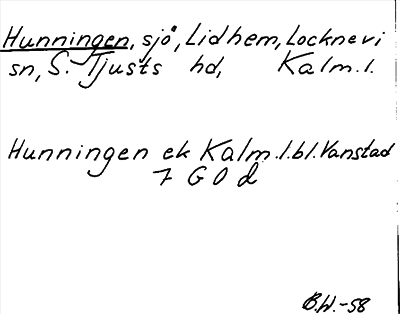 Hunningen, sjö, Lidhem, Locknevi
sn, S. Tjusts hd, Kalm.l.
Hunningen ek Kalm.l.bl. Vanstad
7 G 0 d
B.W.-58